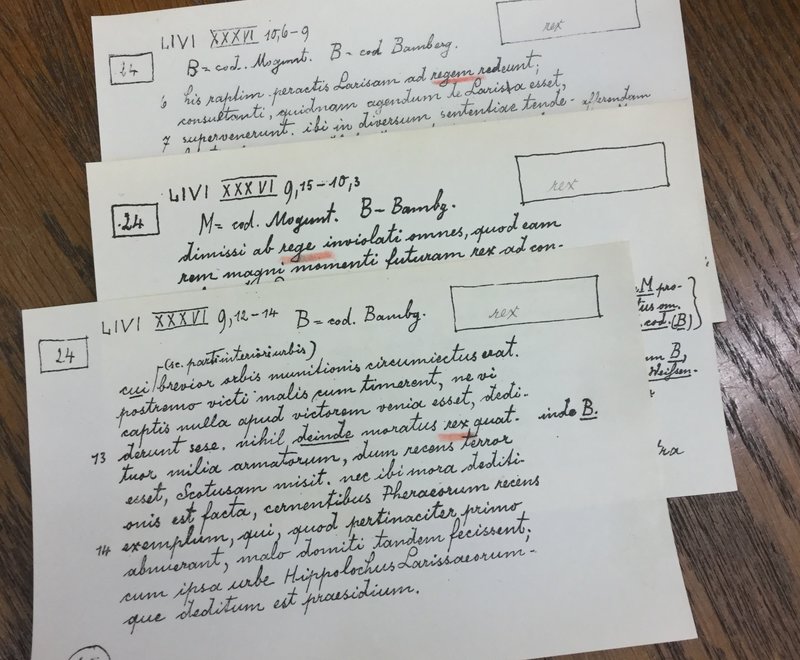 LIVI XXXVI 10,6-9
rex
24
B = cod. Mogunt. B = cod Bamberg.
6 his raptim peractis Larisam ad regem redeunt;
consultanti, quidnam agendum de Larissa esset,
7 supervenerunt. ibi in diversum sententiae tende- afferendam
LIVI XXXVI 9,15-10,3
rex
24
M = cod. Mogunt. B - Bambg.
dimissi ab rege inviolati omnes, quod eam
rem magni momenti futuram rex ad con-
M pro-
cod. (B)
B,
LIVI XXXVI 9,12-14 B = cod. Bambg.
rex
24
(sc. parti interiori urbis)
cui brevior orbis munitionis circumiectus erat.
postremo victi malis cum timerent, ne vi
captis nulla apud victorem venia esset, dedi-
13 derunt sese. nihil deinde moratus rex quat- inde B.
tuor milia armatorum, dum recens terror
esset, Scotusam misit. nec ibi mora dediti-
onis est facta, cernentibus Pheraeorum recens
14 exemplum, qui, quod pertinaciter primo
abnuerant, malo domiti tandem fecissent;
cum ipsa urbe Hippolochus Larissaeorum-
que deditum est praesidium.